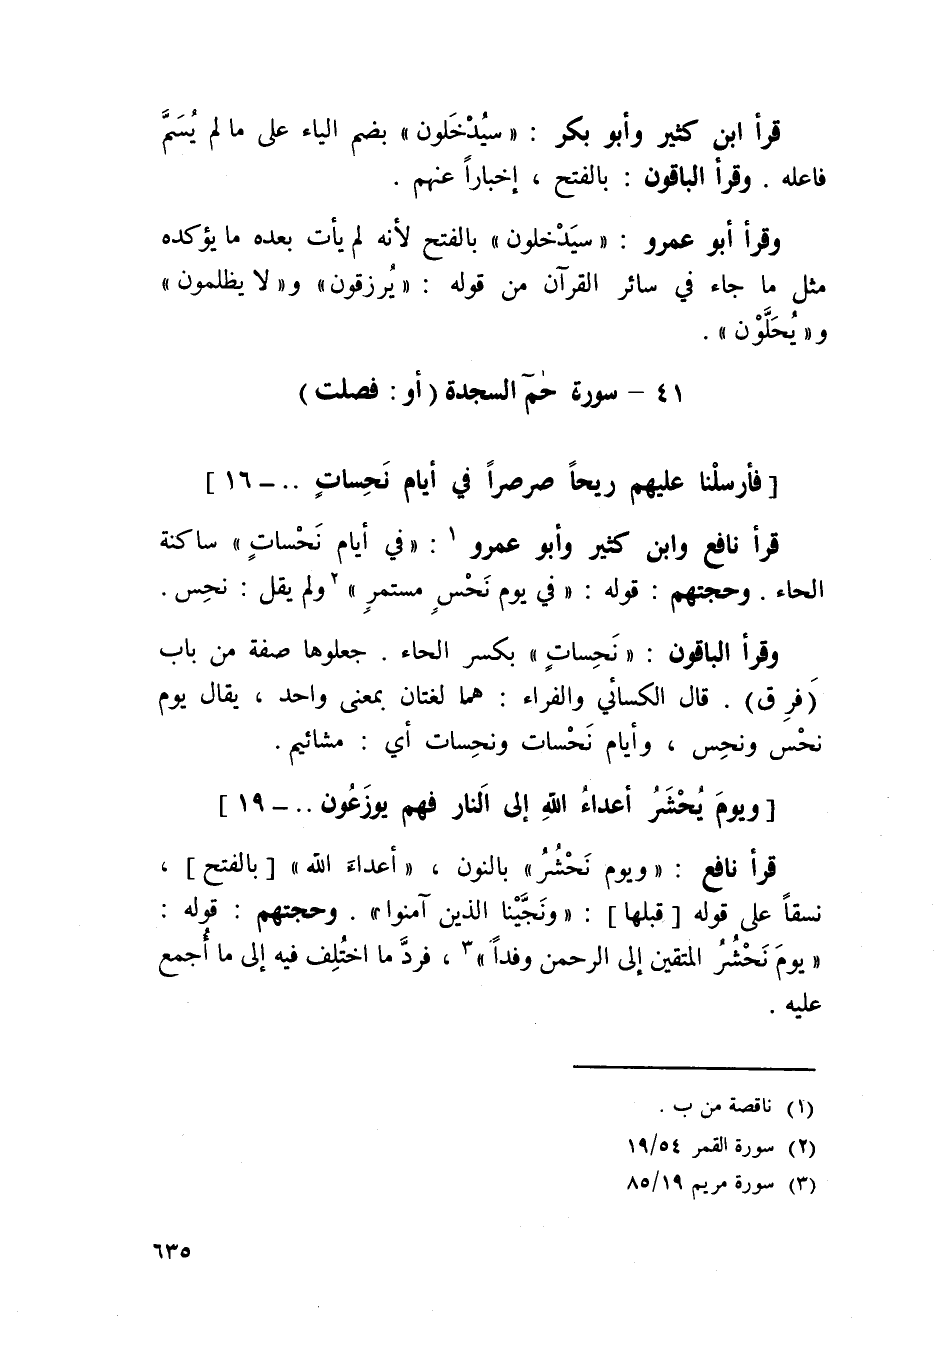 قرأ ابن كثير وأبو بكر : « سيُدْخَلون » بضم الياء على ما لم يُسَمَّ
فاعله . وقرأ الباقون : بالفتح ، إخباراً عنهم .
وقرأ أبو عمرو : « سيَدْخلون » بالفتح لأنه لم يأت بعده ما يؤكده
مثل ما جاء في سائر القرآن من قوله : « يُرزقون » و« لا يظلمون »
و « يُحَلَّوْن » .
٤١ - سورة حٰمٓ السجدة ( أو : فصلت )
[ فأرسلْنا عليهم ريحاً صرصراً في أيام نَحِساتٍ .. - ١٦ ]
قرأ نافع وابن كثير وأبو عمرو ١ : « في أيام نَحْساتٍ » ساكنة
الحاء . وحجتهم : قوله : « في يوم نَحْسٍ مستمرٍ » ٢ ولم يقل : نحِس .
وقرأ الباقون : « نَحِساتٍ » بكسر الحاء . جعلوها صفة من باب
(فَرِق) . قال الكسائي والفراء : هما لغتان بمعنى واحد ، يقال يوم
نحْس ونحِس ، وأيام نَحْسات ونحِسات أي : مشائيم .
[ ويومَ يُحْشَرُ أعداءُ اللهِ إلى النار فهم يوزَعُون .. - ١٩ ]
قرأ نافع : « ويوم نَحْشُرُ » بالنون ، « أعداءَ الله » [ بالفتح ] ،
نسقاً على قوله [ قبلها ] : « ونَجَّيْنا الذين آمنوا » . وحجتهم : قوله :
« يومَ نَحْشُرُ المتقين إلى الرحمن وفداً » ٣ ، فردَّ ما اختُلِف فيه إلى ما أُجمع
عليه .
(١) ناقصة من ب .
(٢) سورة القمر ١٩/٥٤
(٣) سورة مريم ٨٥/١٩
٦٣٥